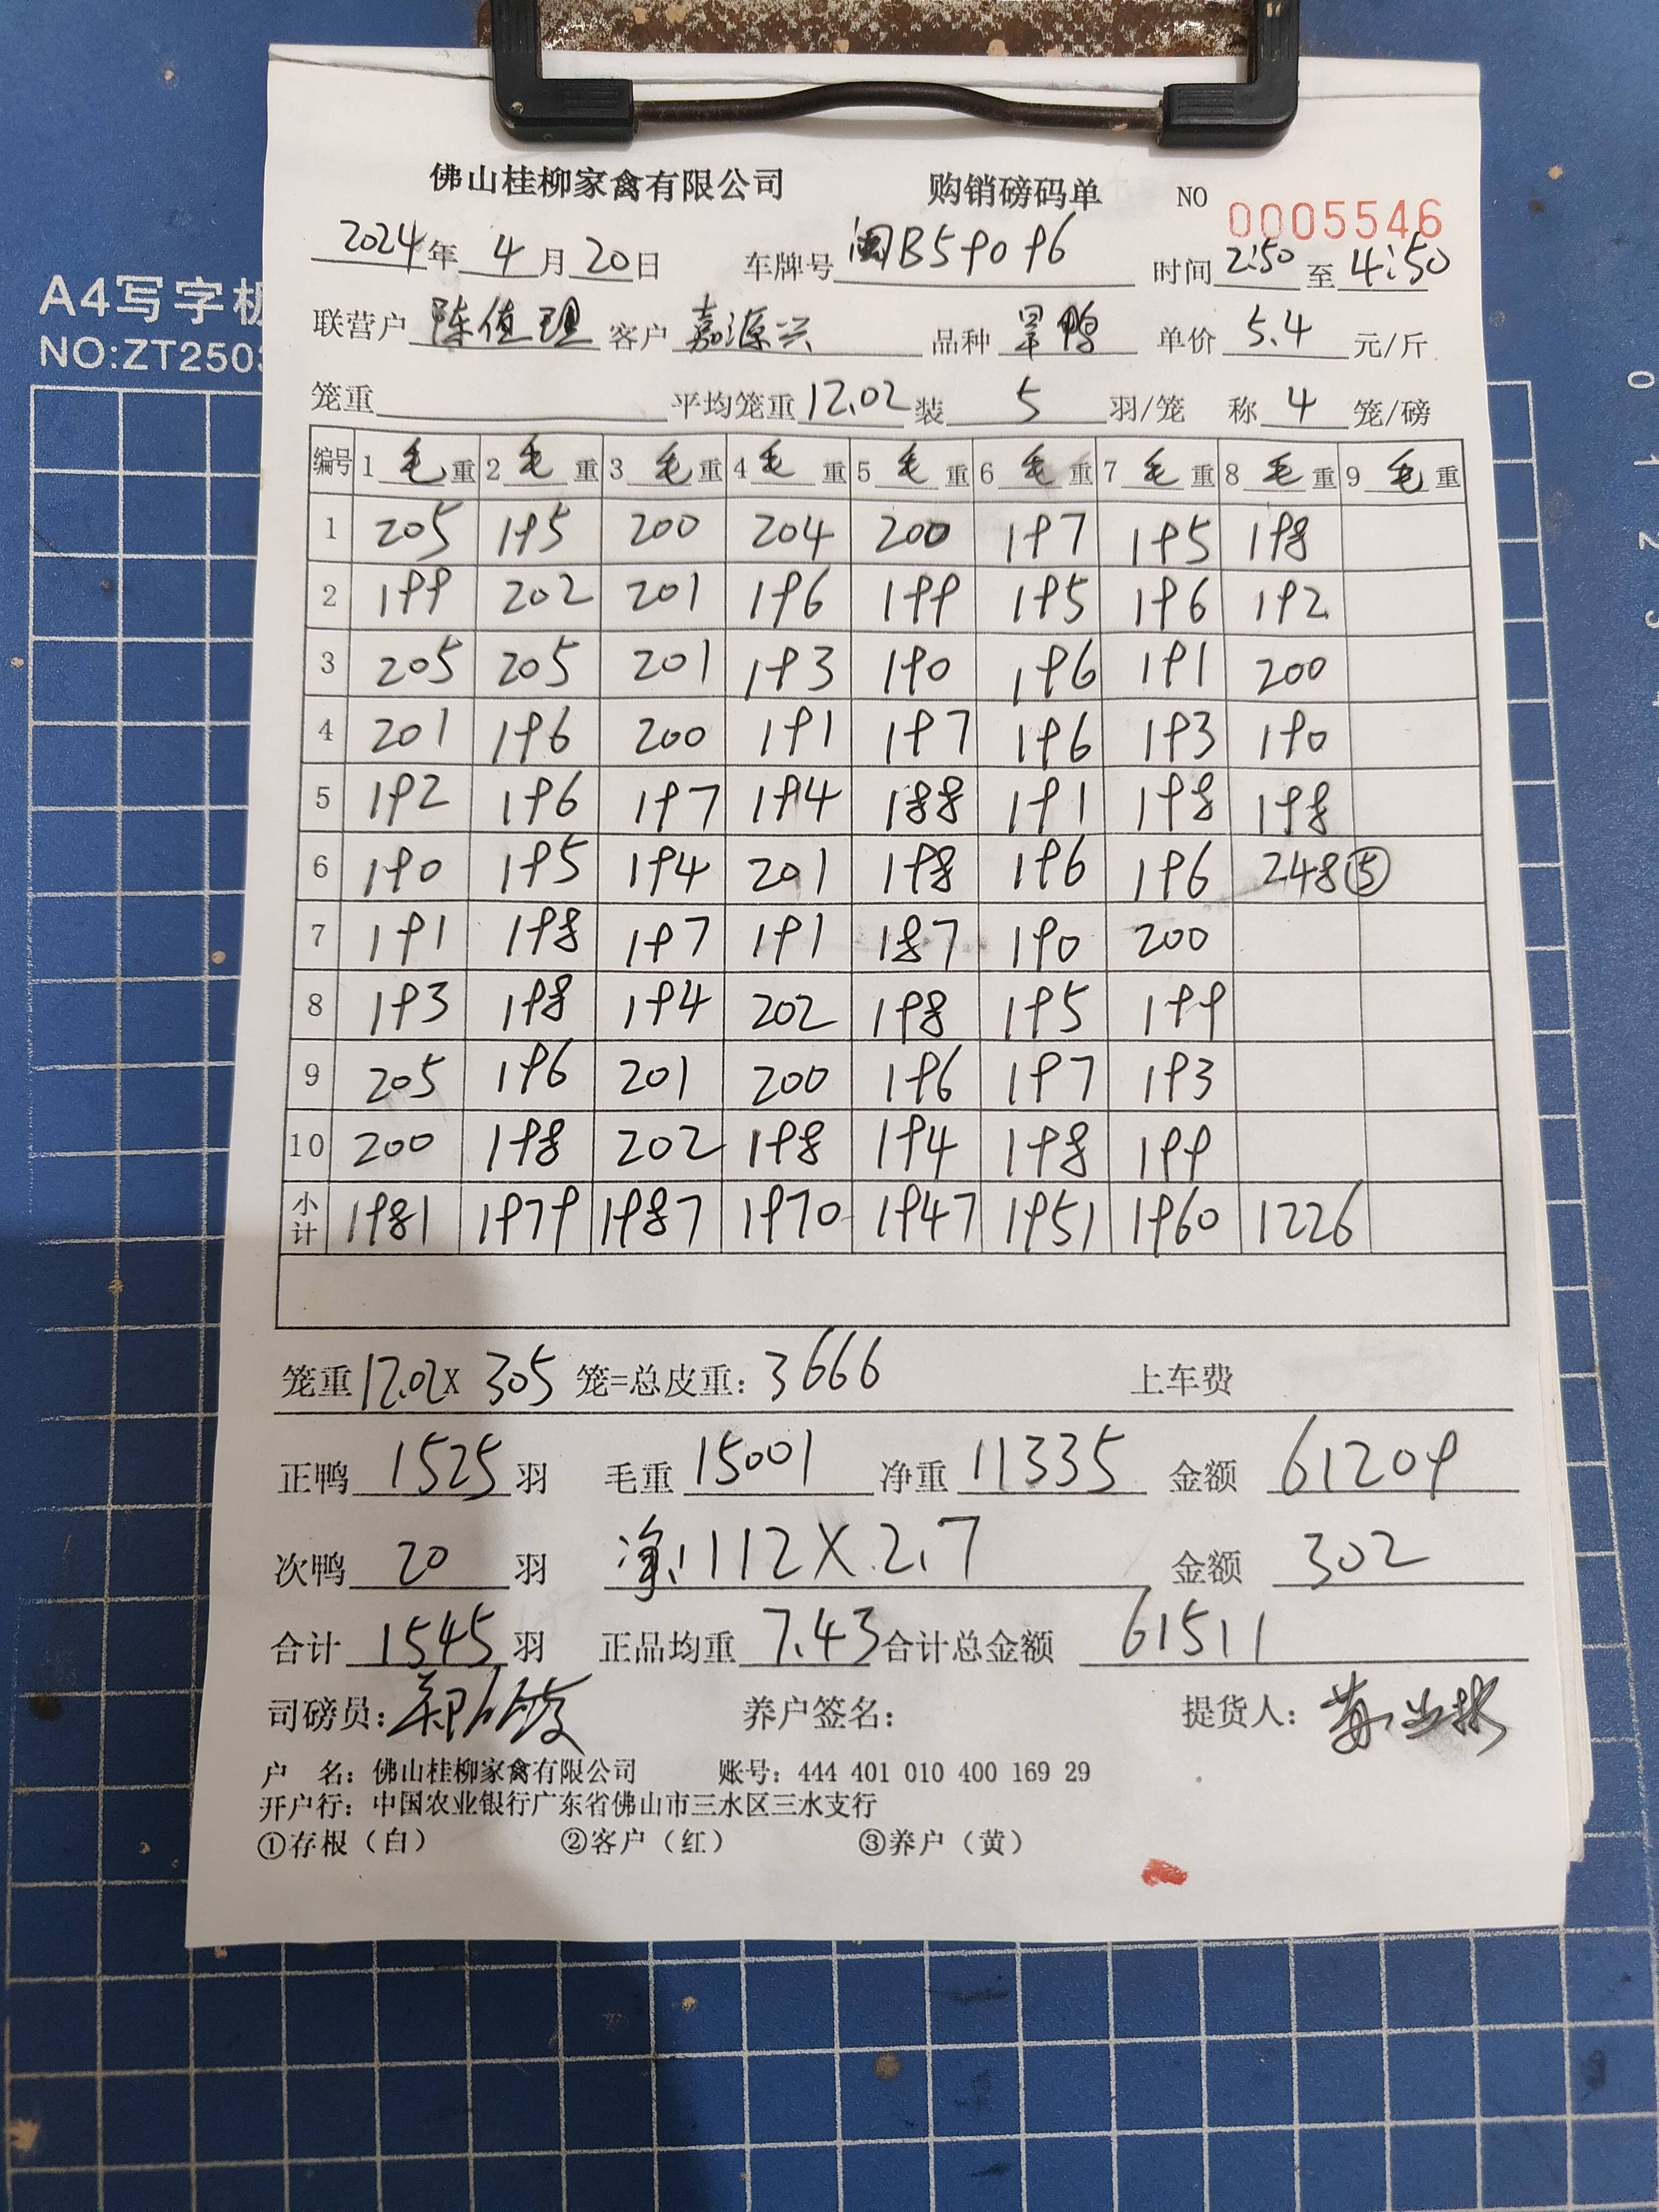 佛山桂柳家禽有限公司 购销磅码单 NO 0005546
2024年 4月20日 车牌号 闽B59096 时间 2:50 至 4:50
A4写字板
联营户 陈值理 客户 嘉源兴 品种 旱鸭 单价 5.4 元/斤
NO:ZT2503
笼重 平均笼重 12.02 装 5 羽/笼 称 4 笼/磅
编号 1 毛重 2 毛重 3 毛重 4 毛重 5 毛重 6 毛重 7 毛重 8 毛重 9 毛重
1 205 195 200 204 200 197 195 198
2 199 202 201 196 199 195 196 192
3 205 205 201 193 190 196 191 200
4 201 196 200 191 197 196 193 190
5 192 196 197 194 188 191 198 198
6 190 195 194 201 198 196 196 248⑤
7 191 198 197 191 187 190 200
8 193 198 194 202 198 195 199
9 205 196 201 200 196 197 193
10 200 198 202 198 194 198 199
小计 1981 1979 1987 1970 1947 1951 1960 1226
笼重12.02X 305 笼=总皮重: 3666 上车费
正鸭 1525 羽 毛重 15001 净重 11335 金额 61209
次鸭 20 羽 净:112X2.7 金额 302
合计 1545 羽 正品均重 7.43 合计总金额 61511
司磅员: 养户签名: 提货人:
户 名: 佛山桂柳家禽有限公司 账号: 444 401 010 400 169 29
开户行: 中国农业银行广东省佛山市三水区三水支行
①存根（白） ②客户（红） ③养户（黄）